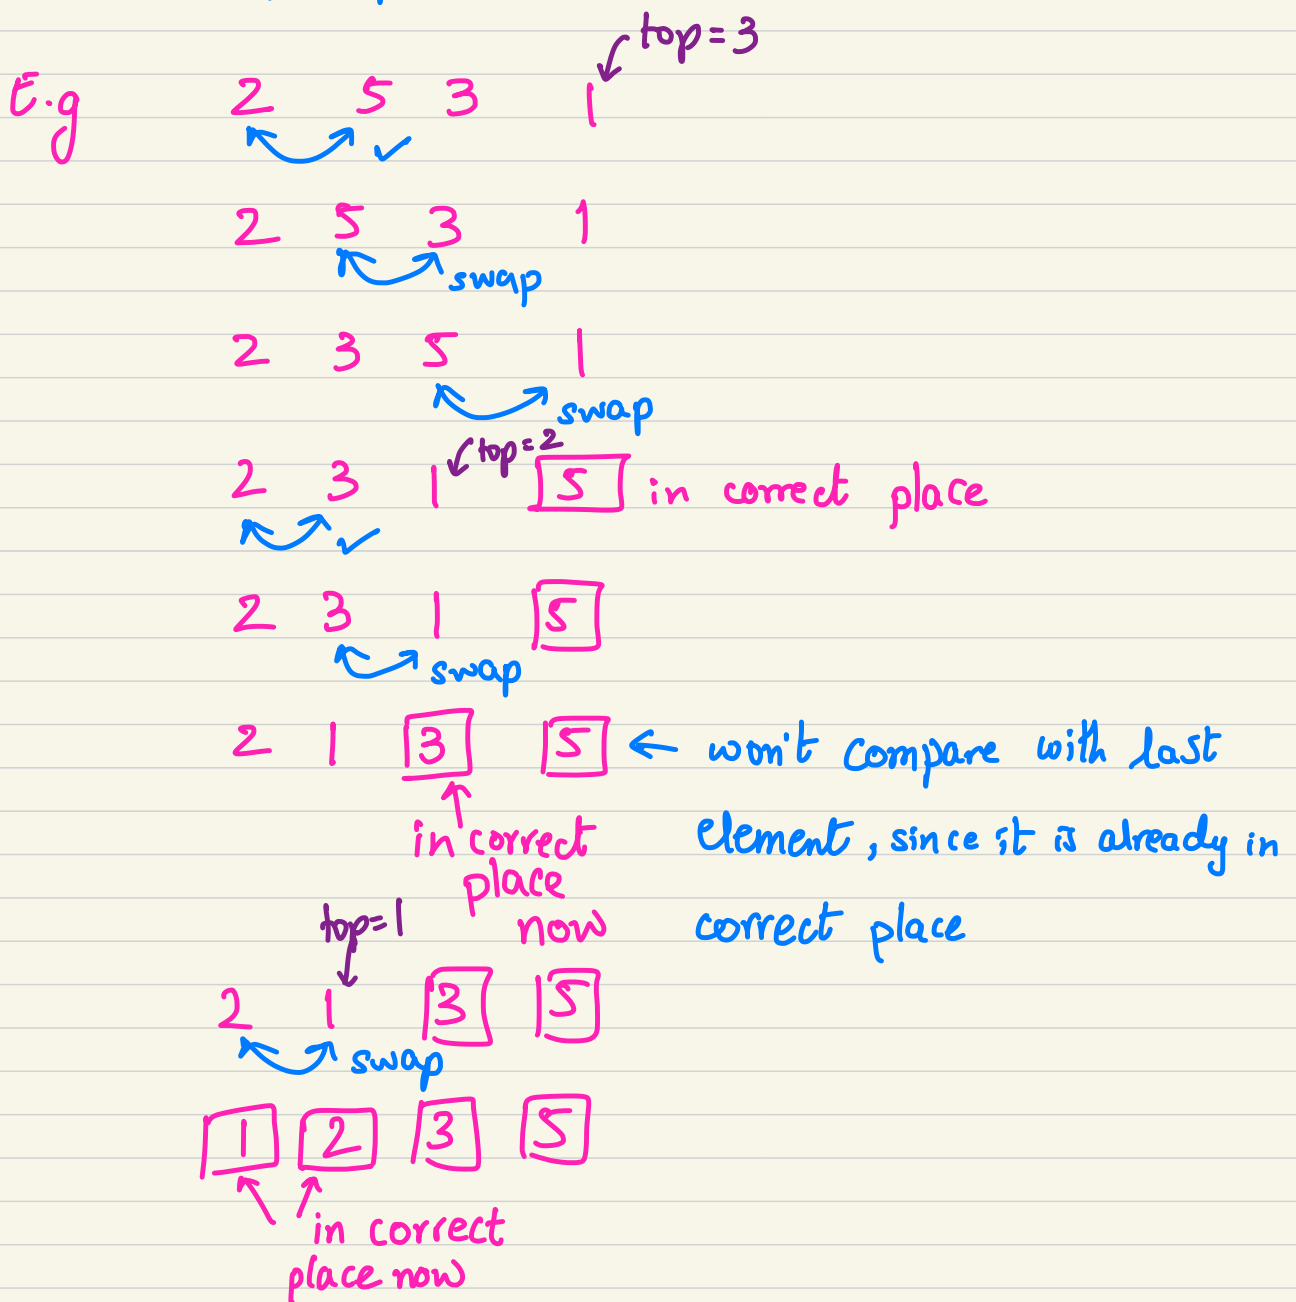 top=3
E.g 2 5 3 1
✓
2 5 3 1
swap
2 3 5 1
swap
top=2
2 3 1 5 in correct place
✓
2 3 1 5
swap
2 1 3 5 ← won't compare with last
in correct element, since it is already in
place
now correct place
top=1
2 1 3 5
swap
1 2 3 5
in correct
place now